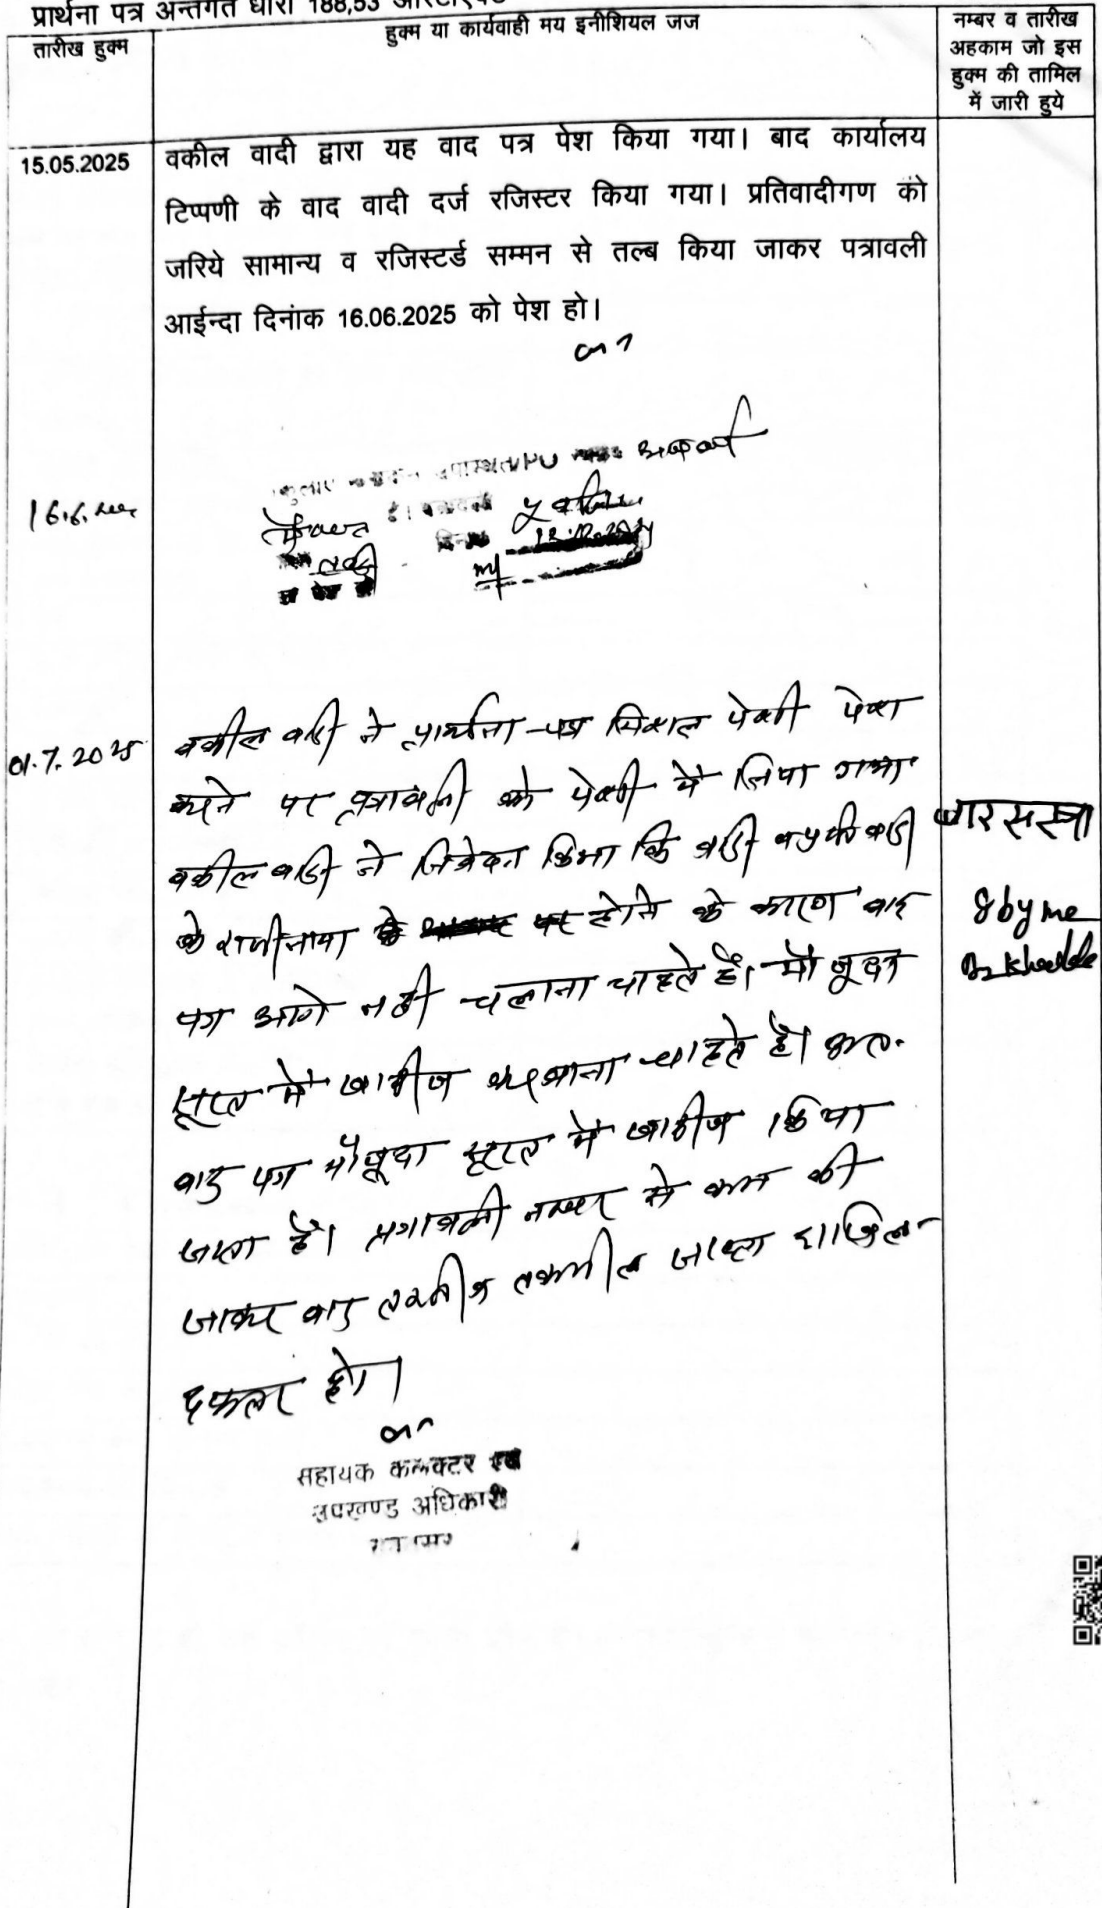 प्रार्थना पत्र अन्तर्गत धारा 188,53
तारीख हुक्म
हुक्म या कार्यवाही मय इनीशियल जज
नम्बर व तारीख
अहकाम जो इस
हुक्म की तामिल
में जारी हुये
15.05.2025
वकील वादी द्वारा यह वाद पत्र पेश किया गया। बाद कार्यालय
टिप्पणी के वाद वादी दर्ज रजिस्टर किया गया। प्रतिवादीगण को
जरिये सामान्य व रजिस्टर्ड सम्मन से तल्ब किया जाकर पत्रावली
आईन्दा दिनांक 16.06.2025 को पेश हो।
16.6.
01.7.2025
वकील वादी ने प्रार्थना-पत्र मिशल पेशी पेश
करने पर पत्रावली को पेशी मे लिया गया
वकील वादी ने निवेदन किया कि वादी व प्रतिवादी
के राजीनामा होने के कारण वाद
पत्र आगे नही चलाना चाहते है। मौजूदा
सूरत मे खारीज करवाना चाहते है। अतः
वाद पत्र मौजूदा सूरत मे खारीज किया
जाता है। पत्रावली नम्बर से कम की
जाकर वाद तकमील जाप्ता दाखिल
दफ्तर हो।
सहायक कलक्टर एवं
उपखण्ड अधिकारी